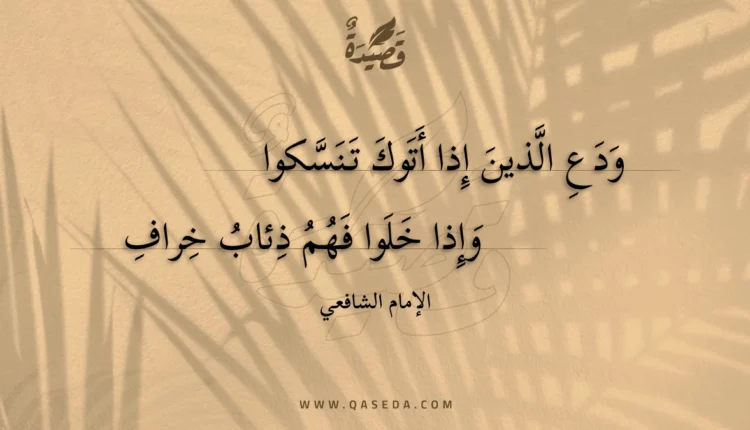 قَصِيدَةٌ
وَدَعِ الَّذينَ إِذا أَتَوكَ تَنَسَّكوا
وَإِذا خَلَوا فَهُمُ ذِئابُ خِرافِ
الإمام الشافعي
WWW.QASEDA.COM